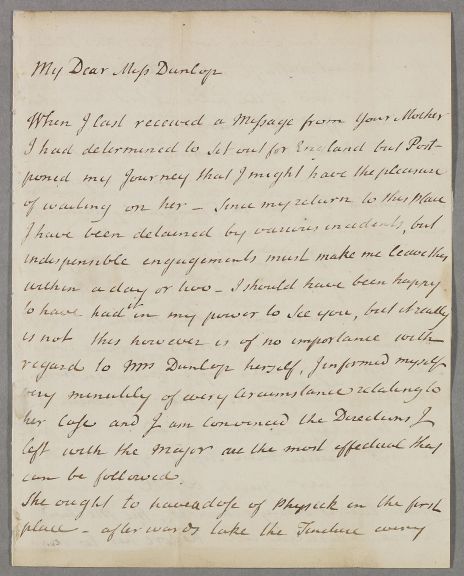 My Dear Miss Dunlop
When I last received a Message from your Mother
I had determined to set out for England but Post-
poned my Journey that I might have the pleasure
of waiting on her – Since my return to this place
I have been detained by various incidents, but
indispensible engagements must make me leave this
within a day or two – I should have been happy
to have had it in my power to see you, but it really
is not this however is of no importance with
regard to Mrs Dunlop herself, I informed myself
very minutely of every Circumstance relating to
her Case and I am convinced the Directions I
left with the Major are the most effectual they
can be followed
She ought to have a dose of Physick in the first
place – afterwards take the Tincture every